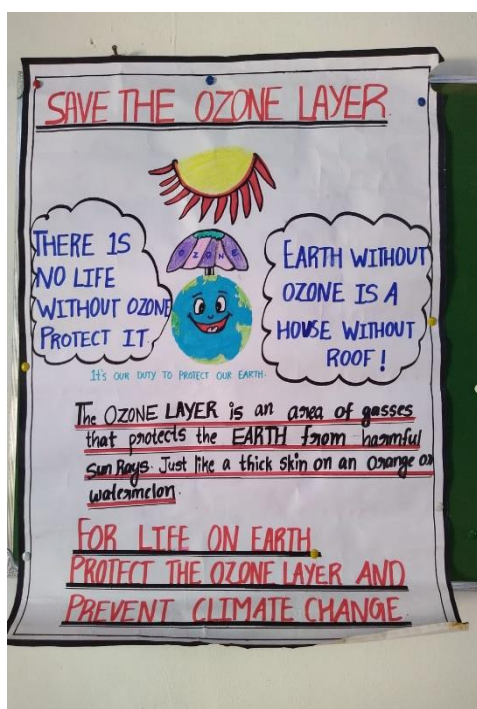 SAVE THE OZONE LAYER
OZONE
THERE IS
NO LIFE
WITHOUT OZONE
PROTECT IT
EARTH WITHOUT
OZONE IS A
HOUSE WITHOUT
ROOF!
It's OUR DUTY TO PROTECT OUR EARTH.
The OZONE LAYER is an area of gasses
that protects the EARTH from harmful
sun Rays. Just like a thick skin on an orange or
watermelon.
FOR LIFE ON EARTH
PROTECT THE OZONE LAYER AND
PREVENT CLIMATE CHANGE.